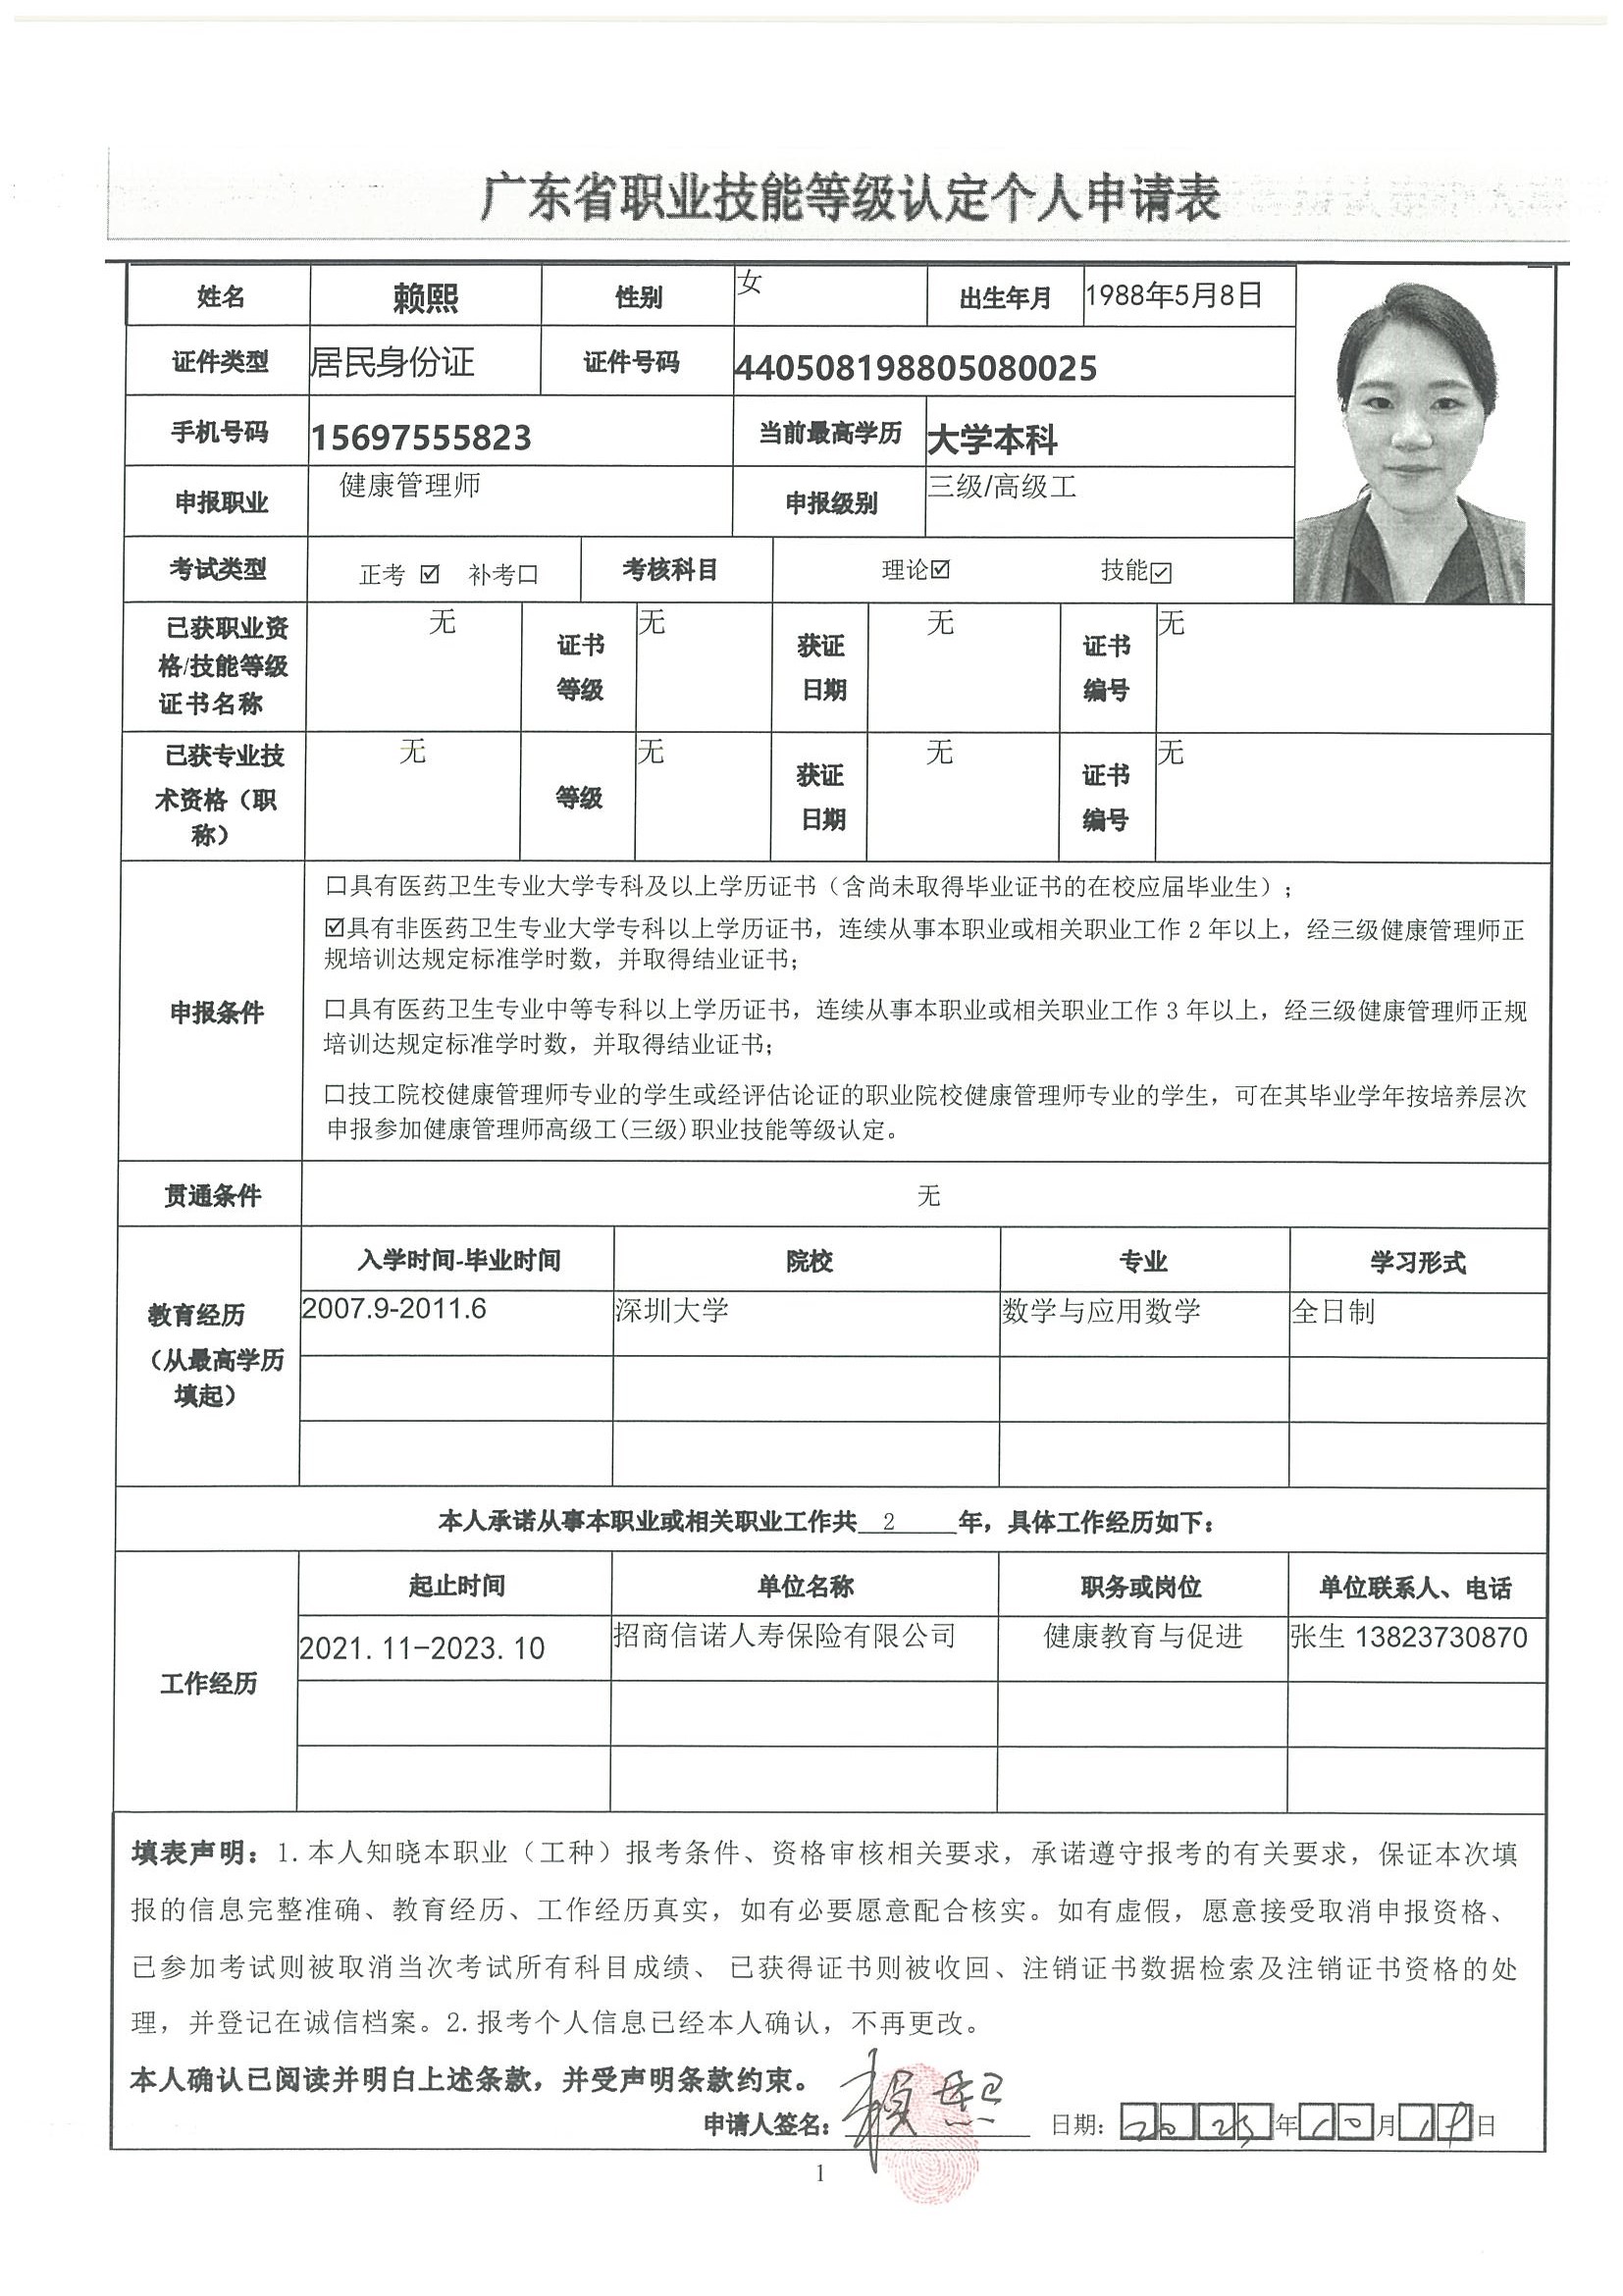 广东省职业技能等级认定个人申请表
姓名 赖熙 性别 女 出生年月 1988年5月8日
证件类型 居民身份证 证件号码 440508198805080025
手机号码 15697555823 当前最高学历 大学本科
申报职业 健康管理师 申报级别 三级/高级工
考试类型 正考☑ 补考口 考核科目 理论☑ 技能☑
已获职业资格/技能等级证书名称 无 证书等级 无 获证日期 无 证书编号 无
已获专业技术资格（职称） 无 等级 无 获证日期 无 证书编号 无
申报条件
口具有医药卫生专业大学专科及以上学历证书（含尚未取得毕业证书的在校应届毕业生）；
☑具有非医药卫生专业大学专科以上学历证书，连续从事本职业或相关职业工作 2 年以上，经三级健康管理师正
规培训达规定标准学时数，并取得结业证书；
口具有医药卫生专业中等专科以上学历证书，连续从事本职业或相关职业工作 3 年以上，经三级健康管理师正规
培训达规定标准学时数，并取得结业证书；
口技工院校健康管理师专业的学生或经评估论证的职业院校健康管理师专业的学生，可在其毕业学年按培养层次
申报参加健康管理师高级工(三级)职业技能等级认定。
贯通条件 无
教育经历（从最高学历填起）
入学时间-毕业时间 院校 专业 学习形式
2007.9-2011.6 深圳大学 数学与应用数学 全日制
本人承诺从事本职业或相关职业工作共 2 年，具体工作经历如下：
工作经历
起止时间 单位名称 职务或岗位 单位联系人、电话
2021.11-2023.10 招商信诺人寿保险有限公司 健康教育与促进 张生 13823730870
填表声明：1.本人知晓本职业（工种）报考条件、资格审核相关要求，承诺遵守报考的有关要求，保证本次填
报的信息完整准确、教育经历、工作经历真实，如有必要愿意配合核实。如有虚假，愿意接受取消申报资格、
已参加考试则被取消当次考试所有科目成绩、 已获得证书则被收回、注销证书数据检索及注销证书资格的处
理，并登记在诚信档案。2.报考个人信息已经本人确认，不再更改。
本人确认已阅读并明白上述条款，并受声明条款约束。
申请人签名：赖熙 日期：2025年10月19日
1